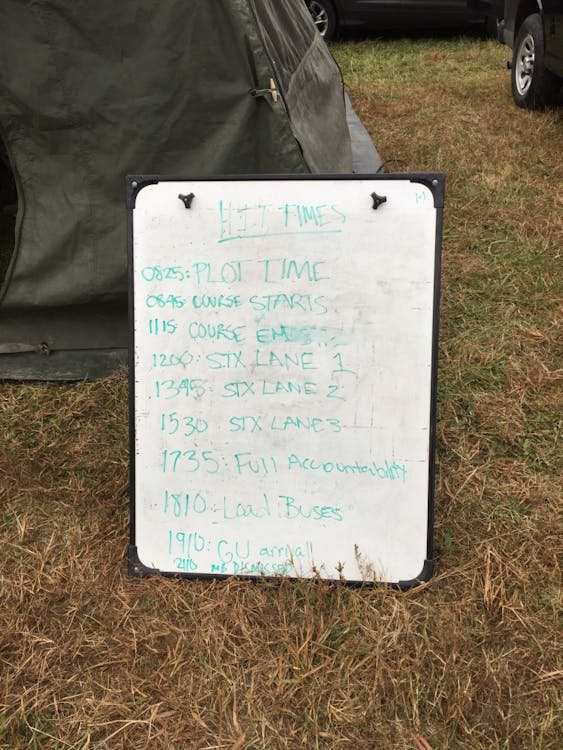 HIT TIMES
0825: PLOT TIME
0845 COURSE STARTS
1115 COURSE ENDS
1200: STX LANE 1
1345: STX LANE 2
1530 STX LANE 3
1735: Full Accountability
1810: Load Buses
1910: GU arrival
2110 DISMISSED